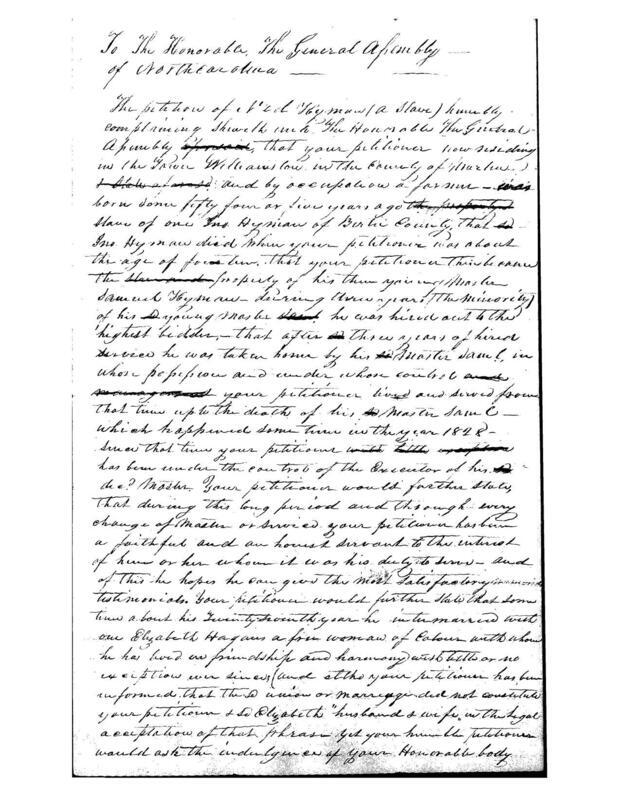 To The Honorable, The General Assembly
of North Carolina
The petition of Ned Hyman (A Slave) humbly
complaining sheweth unto The Honorable The General
Assembly, that your petitioner now residing
in the Town Williamston in the County of Martin
and by occupation a farmer – was
born some fifty four or five years ago the property
slave of one Jno. Hyman of Bertie County, that sd
Jno Hyman died when your petitioner was about
the age of fourteen, that your petitioner then became
the slave and property of his then young Master
Samuel Hyman – during three years (the minority)
of his sd young Master he was hired out to the
highest bidder, – that after sd three years of hired
service he was taken home by his sd Master Saml, in
whose possession and under whose control and
management your petitioner lived and served from
that time up to the death of his sd Master Saml –
which happened some time in the year 1828 –
since that time your petitioner with little exception
has been under the controll of the Executor of his sd
decd Master. Your petitioner would further state,
that during this long period and through every
change of Master or service your petitioner has been
a faithful and an honest servant to the interest
of him or her whom it was his duty to serve – and
of this he hopes he can give the most satisfactory
testimonials. Your petitioner would further state that some
time about his Twenty seventh year he intermarried with
one Elizabeth Hagans a free woman of Colour with whom
he has lived in friendship and harmony with little or no
exception ever since, (and altho your petitioner has been
informed that the sd union or marriage did not constitute
your petitioner & sd Elizabeth "husband & wife, in the legal
acceptation of that phrase yet your humble petitioner
would ask the indulgence of your Honorable body